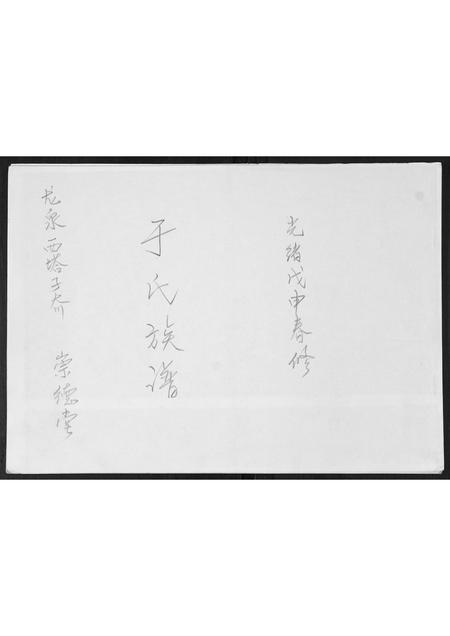 光绪戊申春修
于氏族谱
龙泉西塔子夼 崇德堂